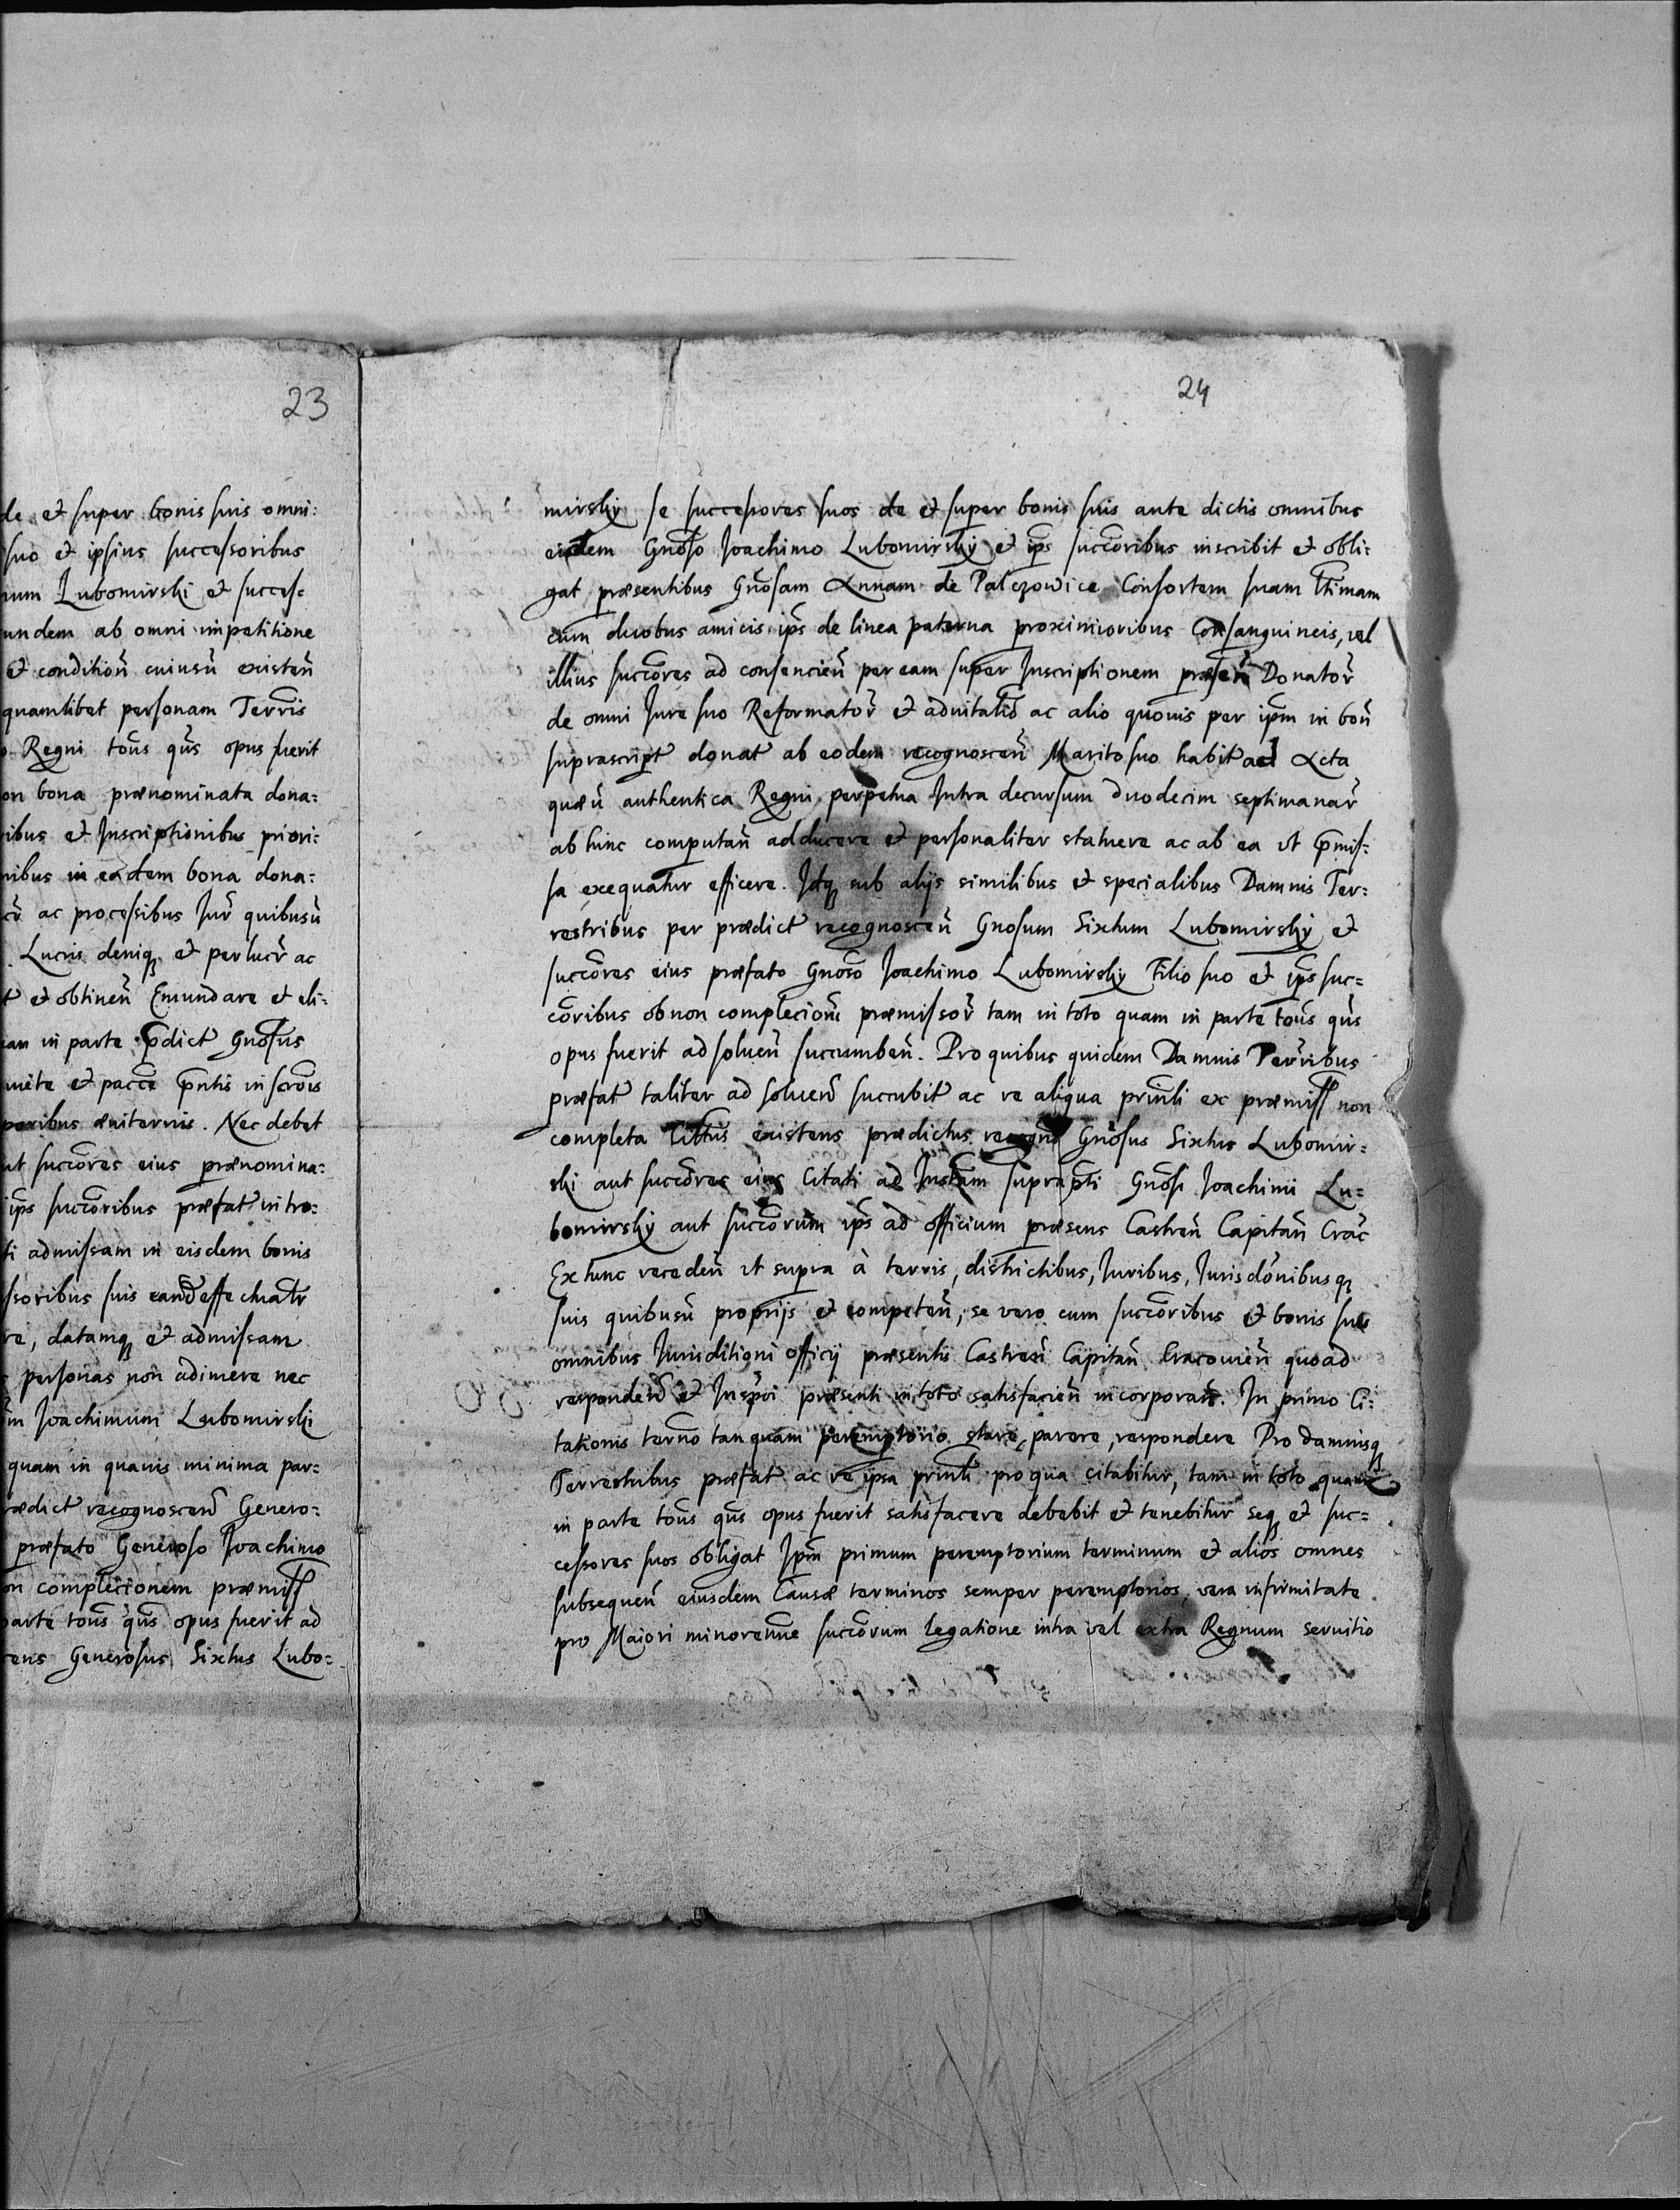 23
de et super bonis suis omni:
suo et ipsius successoribus
num Lubomirski et succes:
undem ab omni impetitione
et condition̄ cuiusū existen̄
quamlibet personam Terr̄is
Regni totīs qn̄s opus fuerit
on bona prænominata dona:
ribus et Inscriptionibus priori:
nibus in eadem bona dona:
ac processibus Jur̄ quibusū
Lucris deniq et perlucr̄ ac
et obtinen̄ Emundare et eli:
iam in parte p̄dict Gn̄osus
et pacce p̄ntis inscr̄ois
æuiternis. Nec debet
ut succ̄ores eius prænomina:
ip̄s succ̄oribus præfat intro:
ti admissam in eisdem bonis
ssoribus suis eand̄
re, datamq et admissam
personas non adimere nec
m Joachimum Lubomirski
quam in quauis minima par:
rædict recognoscen̄ Genero:
præfato Generoso Joachimo
on complecionem præmiss
parte totīs qn̄s opus fuerit ad
ens Generosus Sixtus Lubo:
24
mirsky se successores suos de et super bonis suis ante dictis omnibus
eidem Gn̄oso Joachimo Lubomirsky et ip̄s succ̄oribus inscribit et obli:
gat præsentibus Gn̄osam Annam de Palczowice Consortem suam l̄timam
cum duobus amicis ip̄s de linea paterna proximioribus Consanguineis, vel
illius succ̄ores ad consencien̄ per eam super Inscriptionem præsen̄ Donator̄
de omni Jure suo Reformator̄ et aduitalið ac alio quouis per ip̄m in bon̄
suprascript donat ab eodem recognoscen̄ Marito suo habit ad Acta
quæū authentica Regni perpetua Intra decursum duodecim septimanar̄
ab hinc computan̄ adducere et personaliter statuere ac ab ea vt p̄mis:
sa exequatur efficere. Idq sub alijs similibus et specialibus Damnis Ter:
restribus per prædict recognoscen̄ Gnosum Sixtum Lubomirsky et
succ̄ores eius præfato Gnoso Joachimo Lubomirsky Filio suo et ip̄s suc:
c̄oribus ob non complecion̄ præmissor̄ tam in toto quam in parte totīs qn̄s
opus fuerit ad soluen̄ succumben̄. Pro quibus quidem Damnis Terr̄ibus
præfat taliter ad soluen̄ succubit ac re aliqua prin̄li ex præmiss non
completa Cittūs existens prædictus recogn̄ Gn̄osus Sixtus Lubomir:
ski aut succ̄ores eius Citati ad Inst̄am suprap̄ti Gn̄osi Joachimi Lu:
bomirsky aut succ̄orum ip̄s ad officium præsens Castren̄ Capitan̄ Crac̄
Ex tunc receden̄ vt supra à terris, districtibus, Juribus, Jurisd̄onibusq
suis quibusū proprijs et competen̄, se vero cum succ̄oribus et bonis suis
omnibus Jurisditioni officij præsentis Castren̄ Capitan̄ Cracouien̄ quoad
responden̄ et Insp̄oi præsenti in toto satisfacien̄ incorporan̄. In primo Ci:
tationis tern̄o tanquam peremptorio stare, parere, respondere Pro damnisq
Terrestribus præfat ac re ipsa prin̄li pro qua citabitur, tam in toto quam
in parte totīs qn̄s opus fuerit satisfacere debebit et tenebitur seq et suc:
cessores suos obligat Ip̄m primum peremptorium terminum et alios omnes
subsequen̄ eiusdem Causæ terminos semper peremptorios, vera infirmitate
pro Maiori minorenne succ̄orum legatione intra vel extra Regnum seruitio